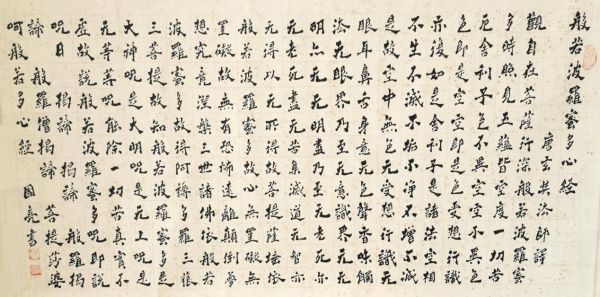 般若波羅蜜多心經
唐玄奘法師譯
觀自在菩薩行深般若波羅蜜
多時照見五蘊皆空度一切苦
厄舍利子色不異空空不異色
色即是空空即是色受想行識
亦復如是舍利子是諸法空相
不生不滅不垢不淨不增不減
是故空中無色无受想行識无
眼耳鼻舌身意无色聲香味觸
法无眼界乃至无意識界无无
明亦无无明盡乃至无老死亦
无老死盡无苦集滅道无智亦
无得以无所得故菩提薩埵依
般若波羅蜜多故心無罣礙無
罣礙故無有恐怖遠離顛倒夢
想究竟涅槃三世諸佛依般若
波羅蜜多故得阿耨多羅三藐
三菩提故知般若波羅蜜多是
大神呪是大明呪是无上呪是
无等等呪能除一切苦真實不
虛故說般若波羅蜜多呪即說
呪曰 揭諦 揭諦 般羅揭
諦 般羅僧揭諦 菩提莎婆
呵般若多心經 國亮書